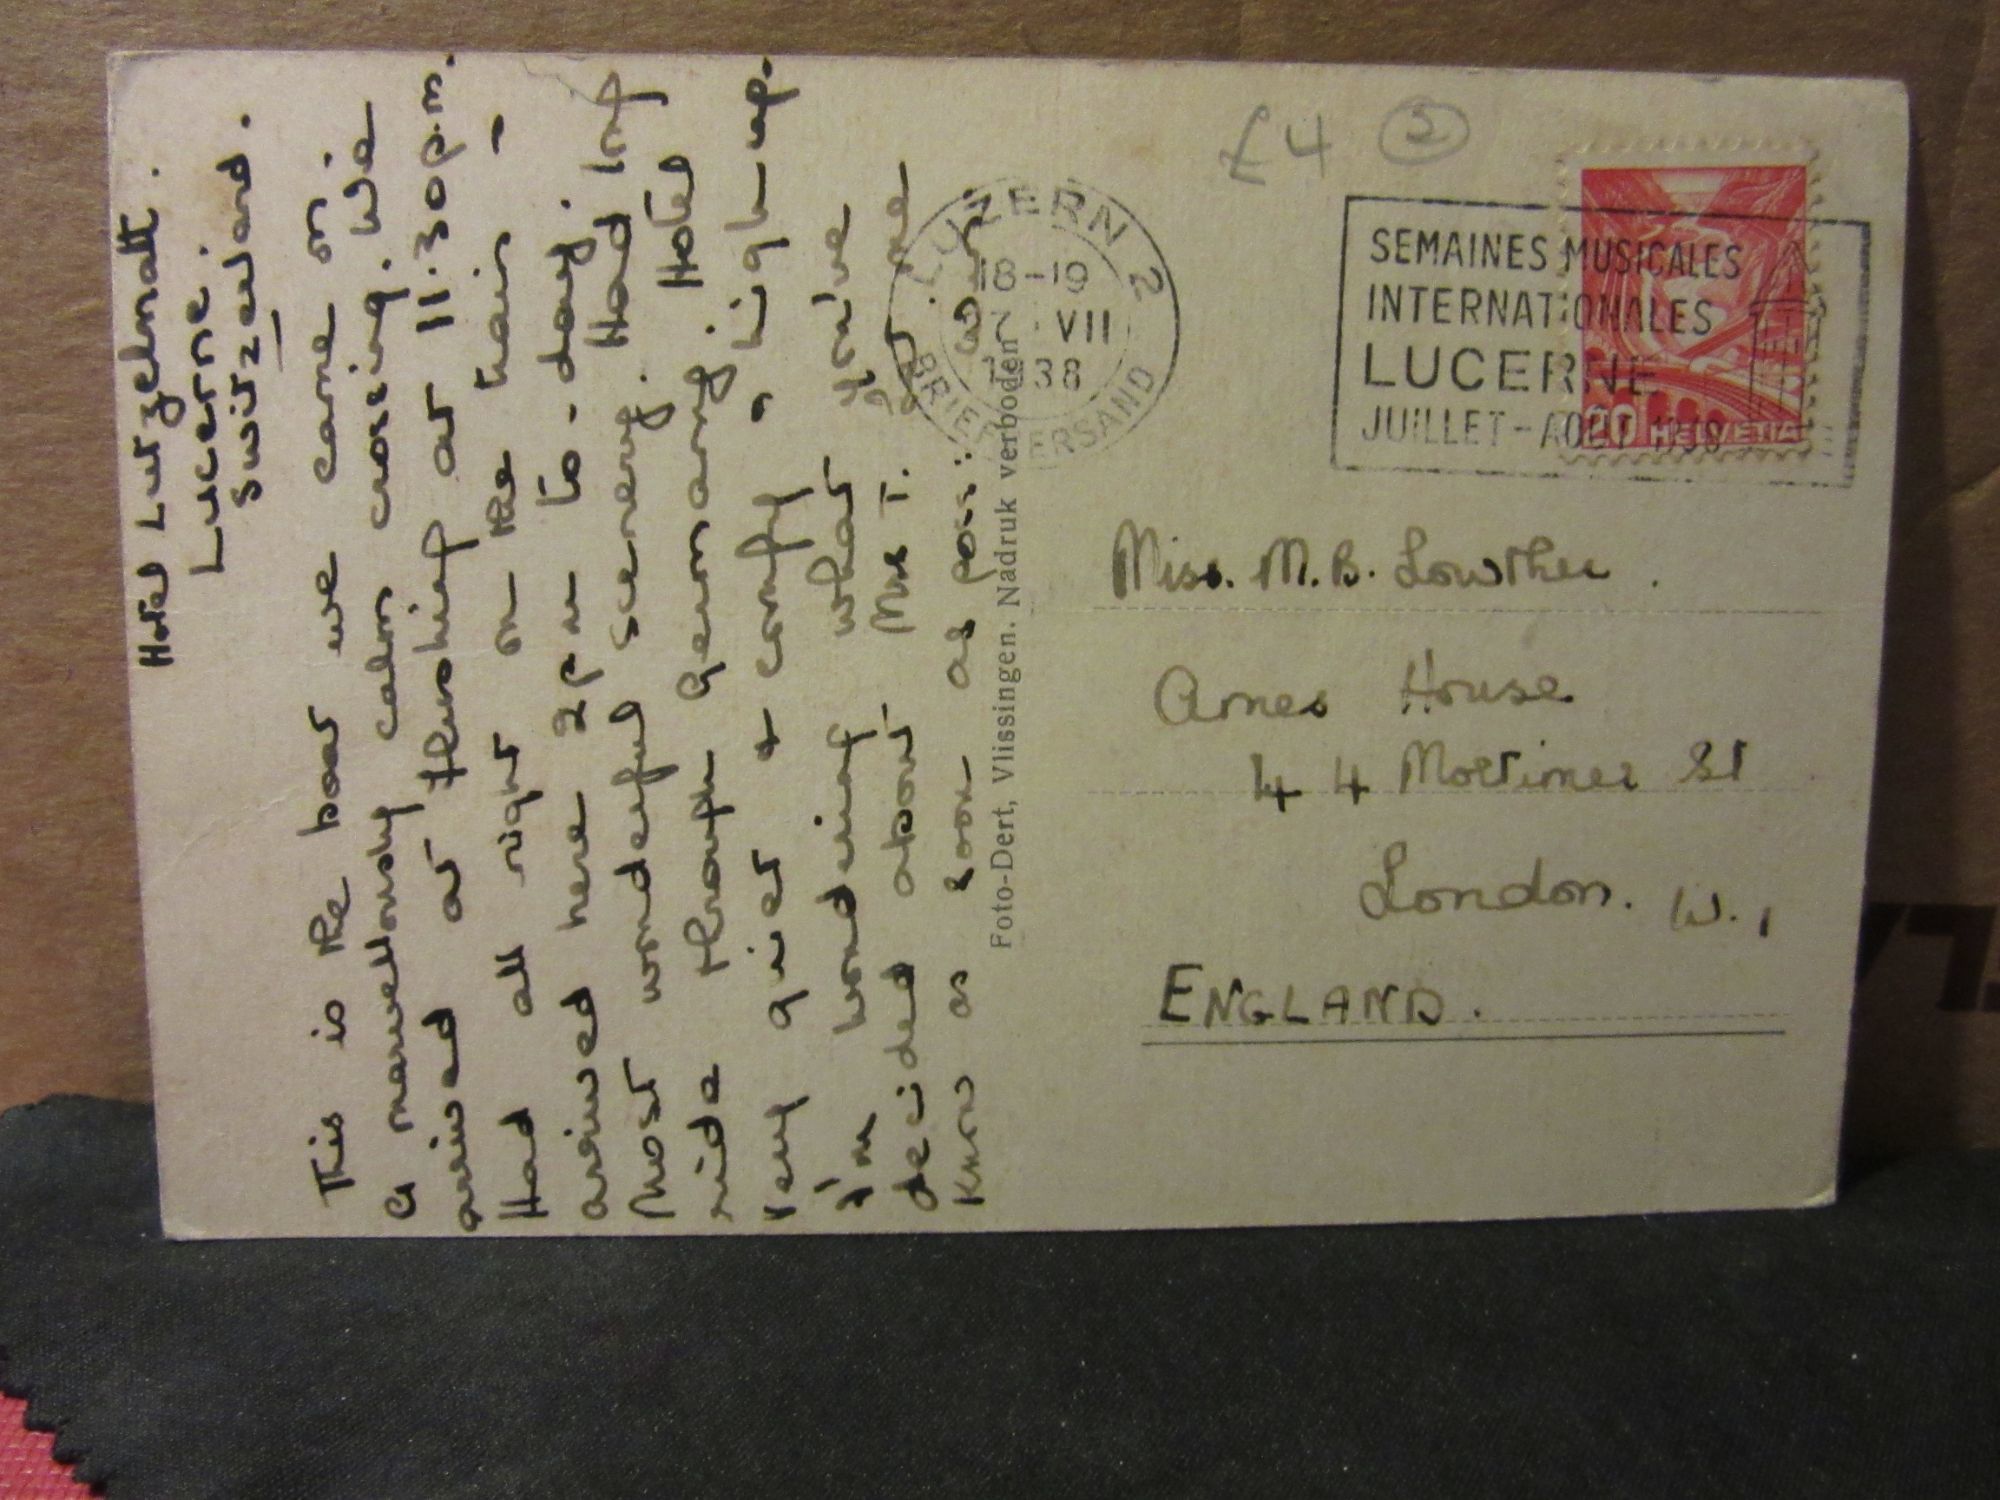 Hotel Lutzelmatt.
Lucerne.
Switzerland.
This is the boat we came on
a marvellously calm crossing. We
arived at Flushing at 11.30 p.m.
Had all right on the train -
arived here 2pm to-day.
Most wonderful scenery. Had long
ride through Germany. Hotel
very quiet & comfy, high up.
I'm wondering what you've
decided about Mrs T. Let me
know as soon as poss: 
Foto-Dert, Vlissingen. Nadruk verboden
LUZERN 2
18-19
VII
1938
BRIEFVERSAND
£4 2
SEMAINES MUSICALES
INTERNATIONALES
LUCERNE
JUILLET - AOUT 1938
20 HELVETIA
Miss. M. B. Lowther.
Ames House
44 Mortimer St
London. W.1
ENGLAND.